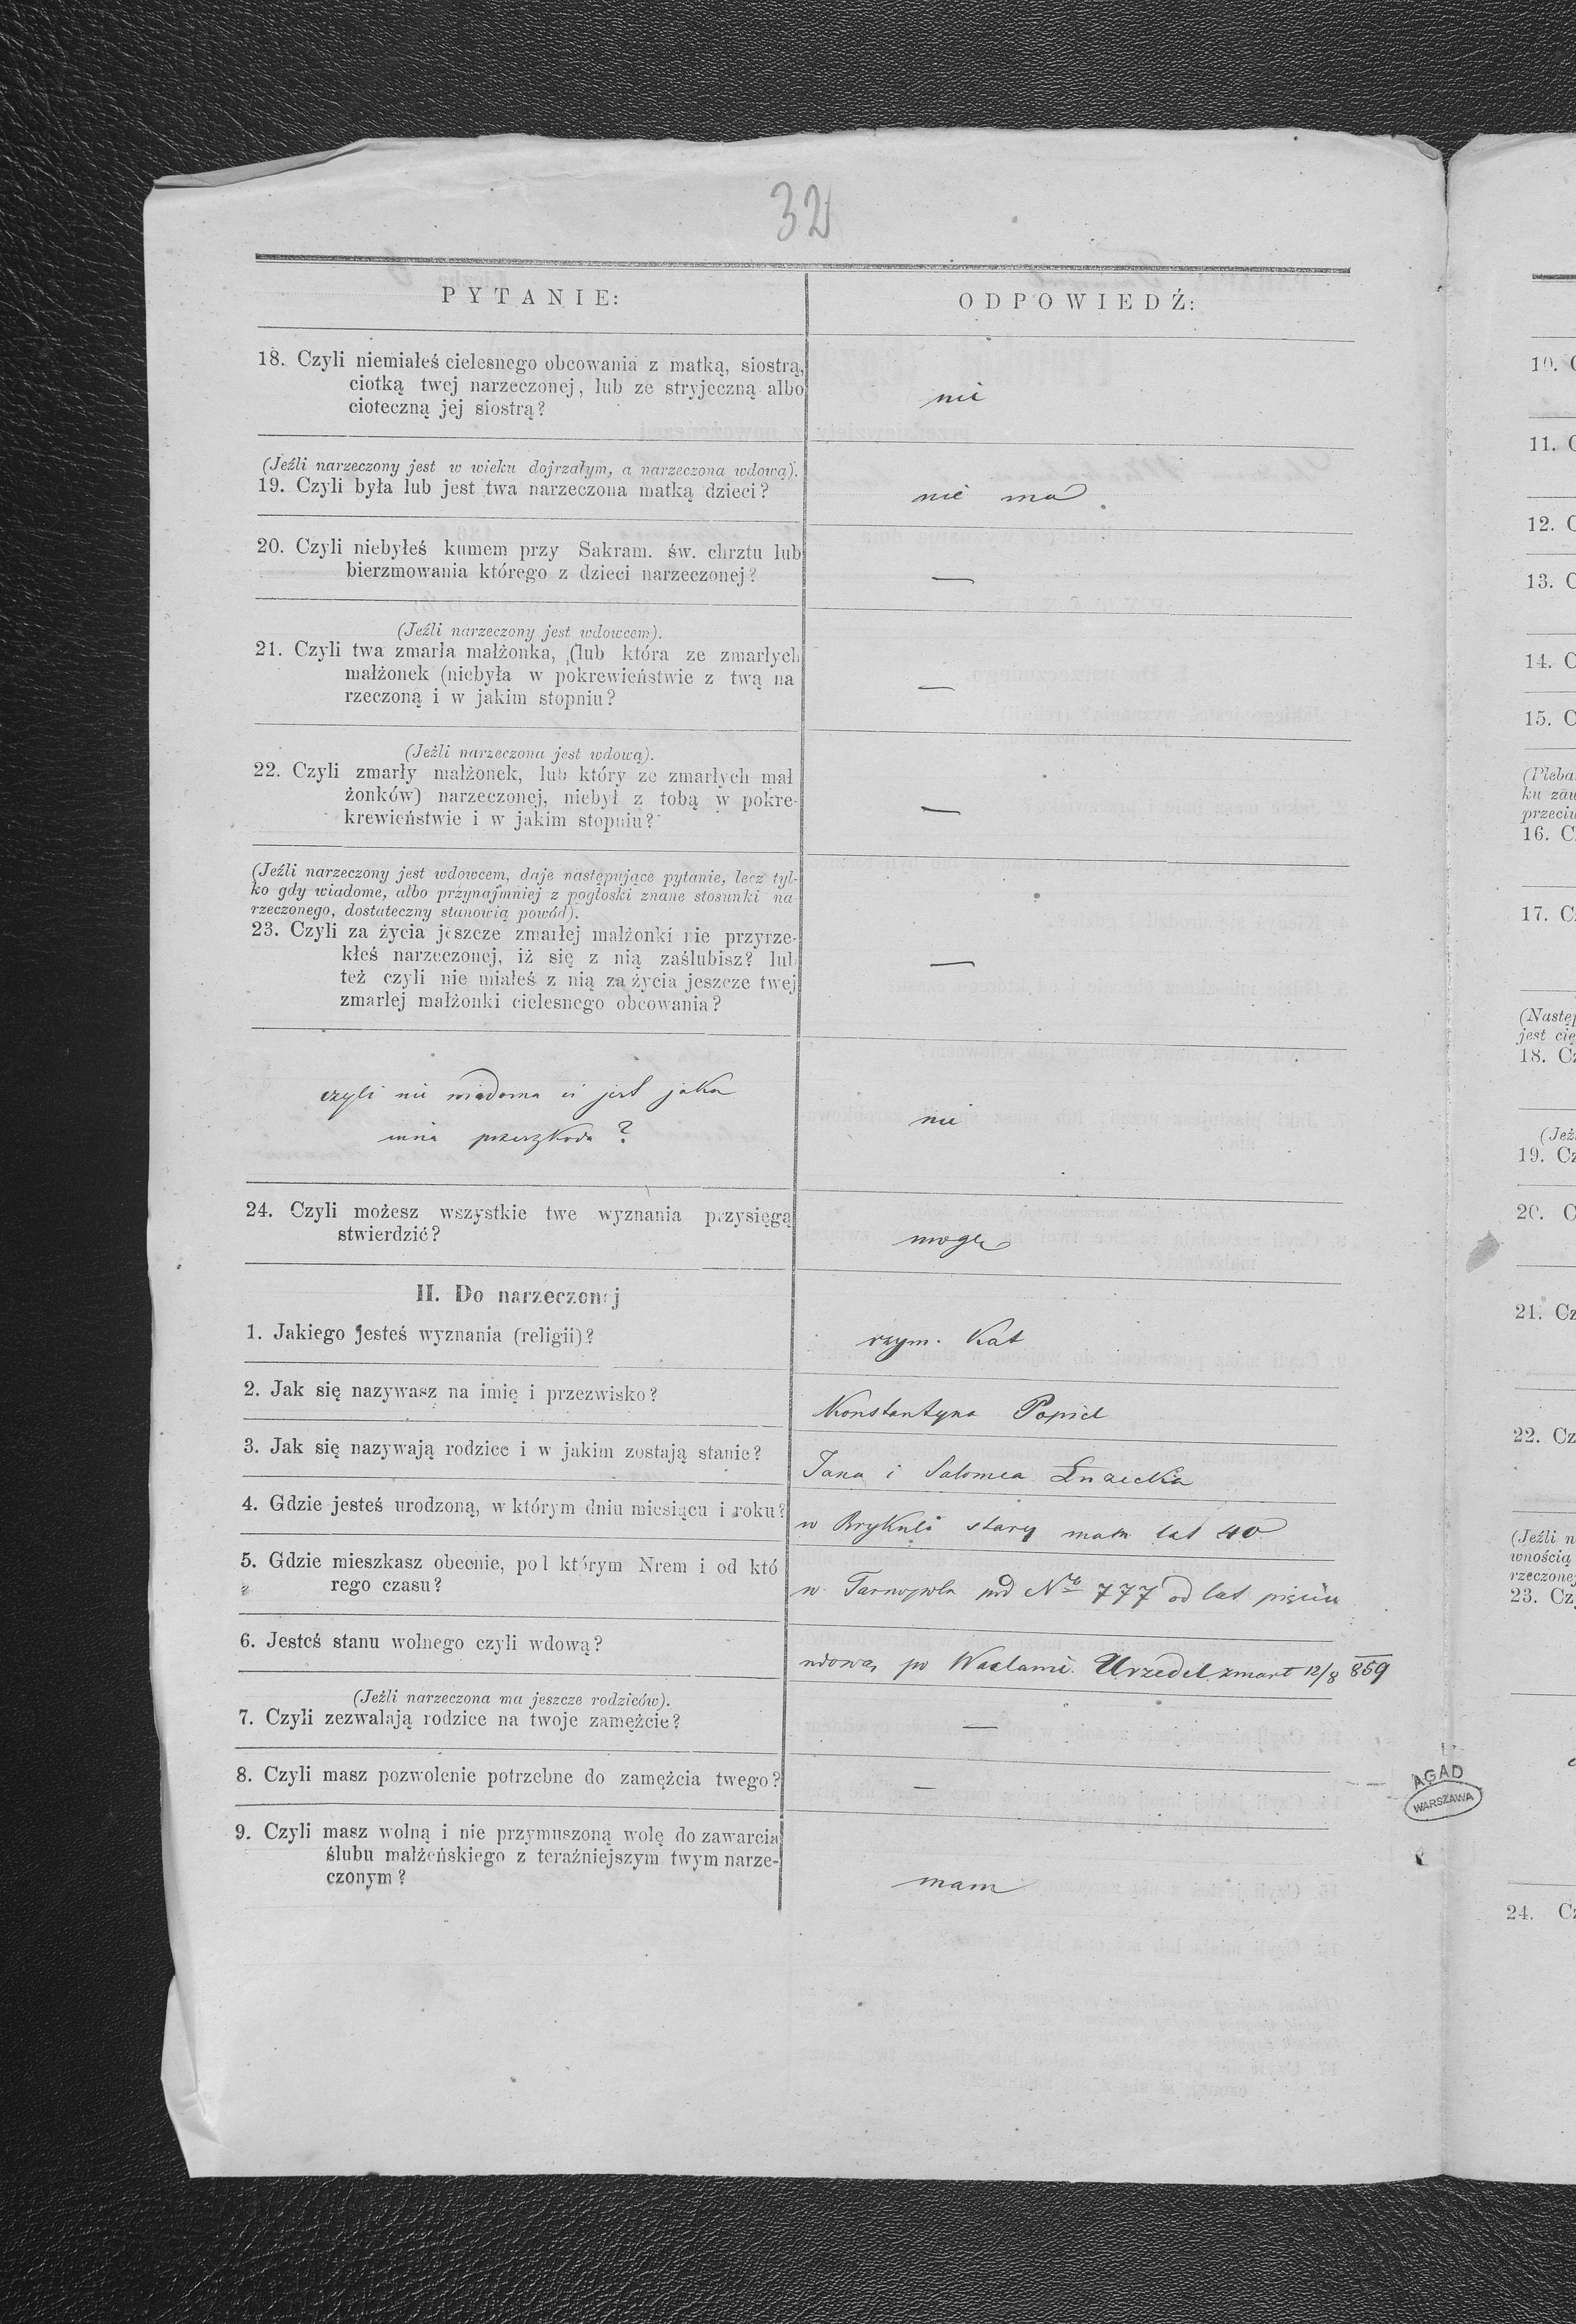 32
PYTANIE:
ODPOWIEDŹ:
18. Czyli niemiałeś cielesnego obcowania z matką, siostrą,
ciotką twej narzeczonej, lub ze stryjeczną albo
cioteczną jej siostrą?
nie
(Jeźli narzeczony jest w wieku dojrzałym, a narzeczona wdową).
19. Czyli była lub jest twa narzeczona matką dzieci?
nie ma
20. Czyli niebyłeś kumem przy Sakram. św. chrztu lub
bierzmowania którego z dzieci narzeczonej?
—
(Jeźli narzeczony jest wdowcem).
21. Czyli twa zmarła małżonka, (lub która ze zmarłych
małżonek (niebyła w pokrewieństwie z twą na
rzeczoną i w jakim stopniu?
—
(Jeżli narzeczona jest wdową).
22. Czyli zmarły małżonek, lub który ze zmarłych mał
żonków) narzeczonej, niebył z tobą w pokre-
krewieństwie i w jakim stopniu?
—
(Jeźli narzeczony jest wdowcem, daje następujące pytanie, lecz tyl-
ko gdy wiadome, albo przynajmniej z pogłoski znane stosunki na
rzeczonego, dostateczny stanowią powód).
23. Czyli za życia jeszcze zmarłej małżonki nie przyrze-
kłeś narzeczonej, iż się z nią zaślubisz? lub
też czyli nie miałeś z nią za życia jeszcze twej
zmarłej małżonki cielesnego obcowania?
—
czyli nie wiadoma ci jest jaka
inna przeszkoda?
nie
24. Czyli możesz wszystkie twe wyznania przysięgą
stwierdzić?
mogę
II. Do narzeczonej
1. Jakiego jesteś wyznania (religii)?
rzym. Kat
2. Jak się nazywasz na imię i przezwisko?
Konstantyna Popiel
3. Jak się nazywają rodzice i w jakim zostają stanie?
Jana i Salomea
4. Gdzie jesteś urodzoną, w którym dniu miesiącu i roku?
w Brykuli stary mam lat 40
5. Gdzie mieszkasz obecnie, pod którym Nrem i od któ
rego czasu?
w Tarnopolu pod Nro 777 od lat pięciu
6. Jesteś stanu wolnego czyli wdową?
wdowa po Wacławie Urzedel zmart 12/8 859
(Jeźli narzeczona ma jeszcze rodziców).
7. Czyli zezwalają rodzice na twoje zamężcie?
—
8. Czyli masz pozwolenie potrzebne do zamężcia twego?
—
9. Czyli masz wolną i nie przymuszoną wolę do zawarcia
ślubu małżeńskiego z teraźniejszym twym narze-
czonym?
mam
AGAD
WARSZAWA
10.
11.
12.
13.
14.
15.
(Pleba
ku zau
przeciw
16.
17.
(Następ
jest cię
18.
(Jeż
19.
20.
21.
22.
(Jeźli n
wnością
rzeczonej
23.
24.